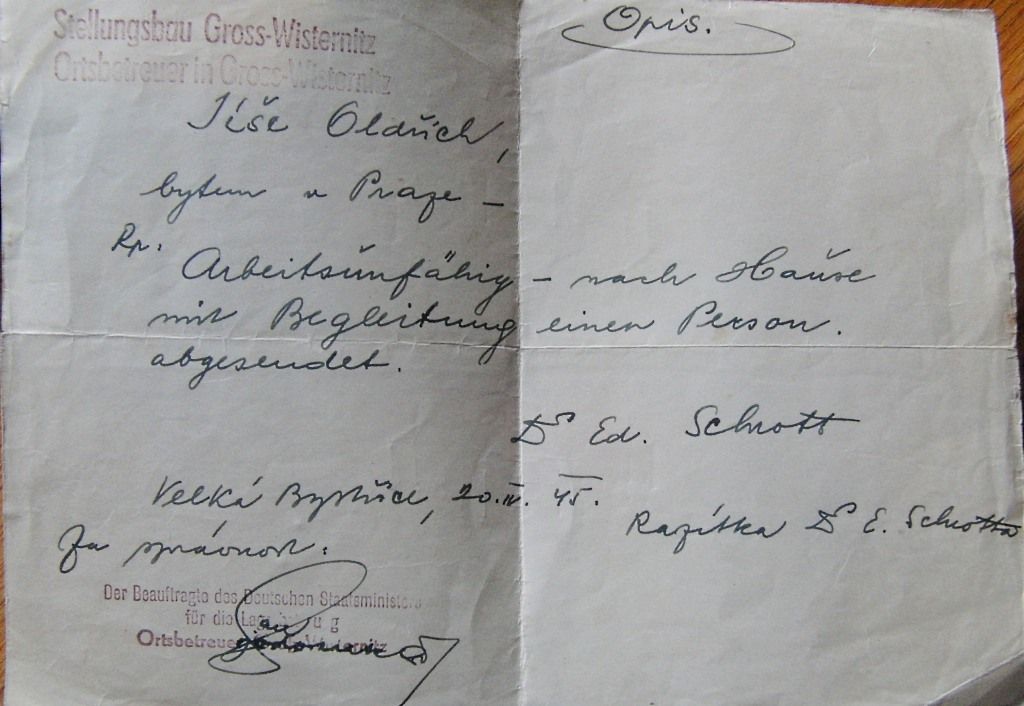 Stellungsbau Gross-Wisternitz
Ortsbetreuer in Gross-Wisternitz
Opis.
Jíše Oldřich,
bytem v Praze –
Rp. Arbeitsŭnfähig – nach Haŭse
mit Begleitung einer Person.
abgesendet.
Dr Ed. Schrott
Velká Bystřice, 20. IV. 45.
Razítka Dr E. Schrotta
Za správnost:
Der Beauftragte des Deutschen Staatsministers
für die
Ortsbetreuer Wisternitz